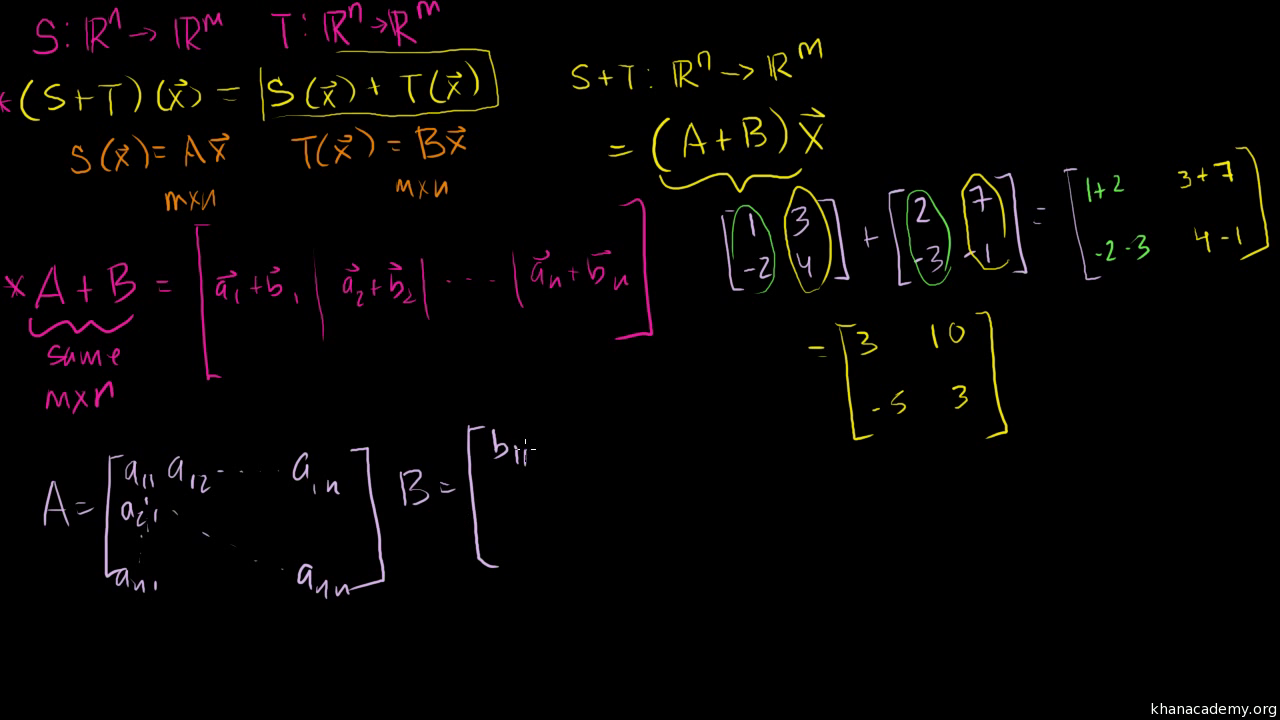 S: ℝⁿ → ℝᵐ T: ℝⁿ → ℝᵐ
*(S+T)(x⃗) = S(x⃗) + T(x⃗)
S+T: ℝⁿ → ℝᵐ
S(x⃗) = Ax⃗ T(x⃗) = Bx⃗
m×n m×n
= (A+B)x⃗
[1 3; -2 4] + [2 7; -3 -1] = [1+2 3+7; -2-3 4-1]
= [3 10; -5 3]
*A+B = [a⃗₁+b⃗₁ | a⃗₂+b⃗₂ | ··· | a⃗ₙ+b⃗ₙ]
same
m×n
A = [a₁₁ a₁₂ ··· a₁ₙ
a₂₁
aₙ₁ aₙₙ]
B = [b₁₁
khanacademy.org